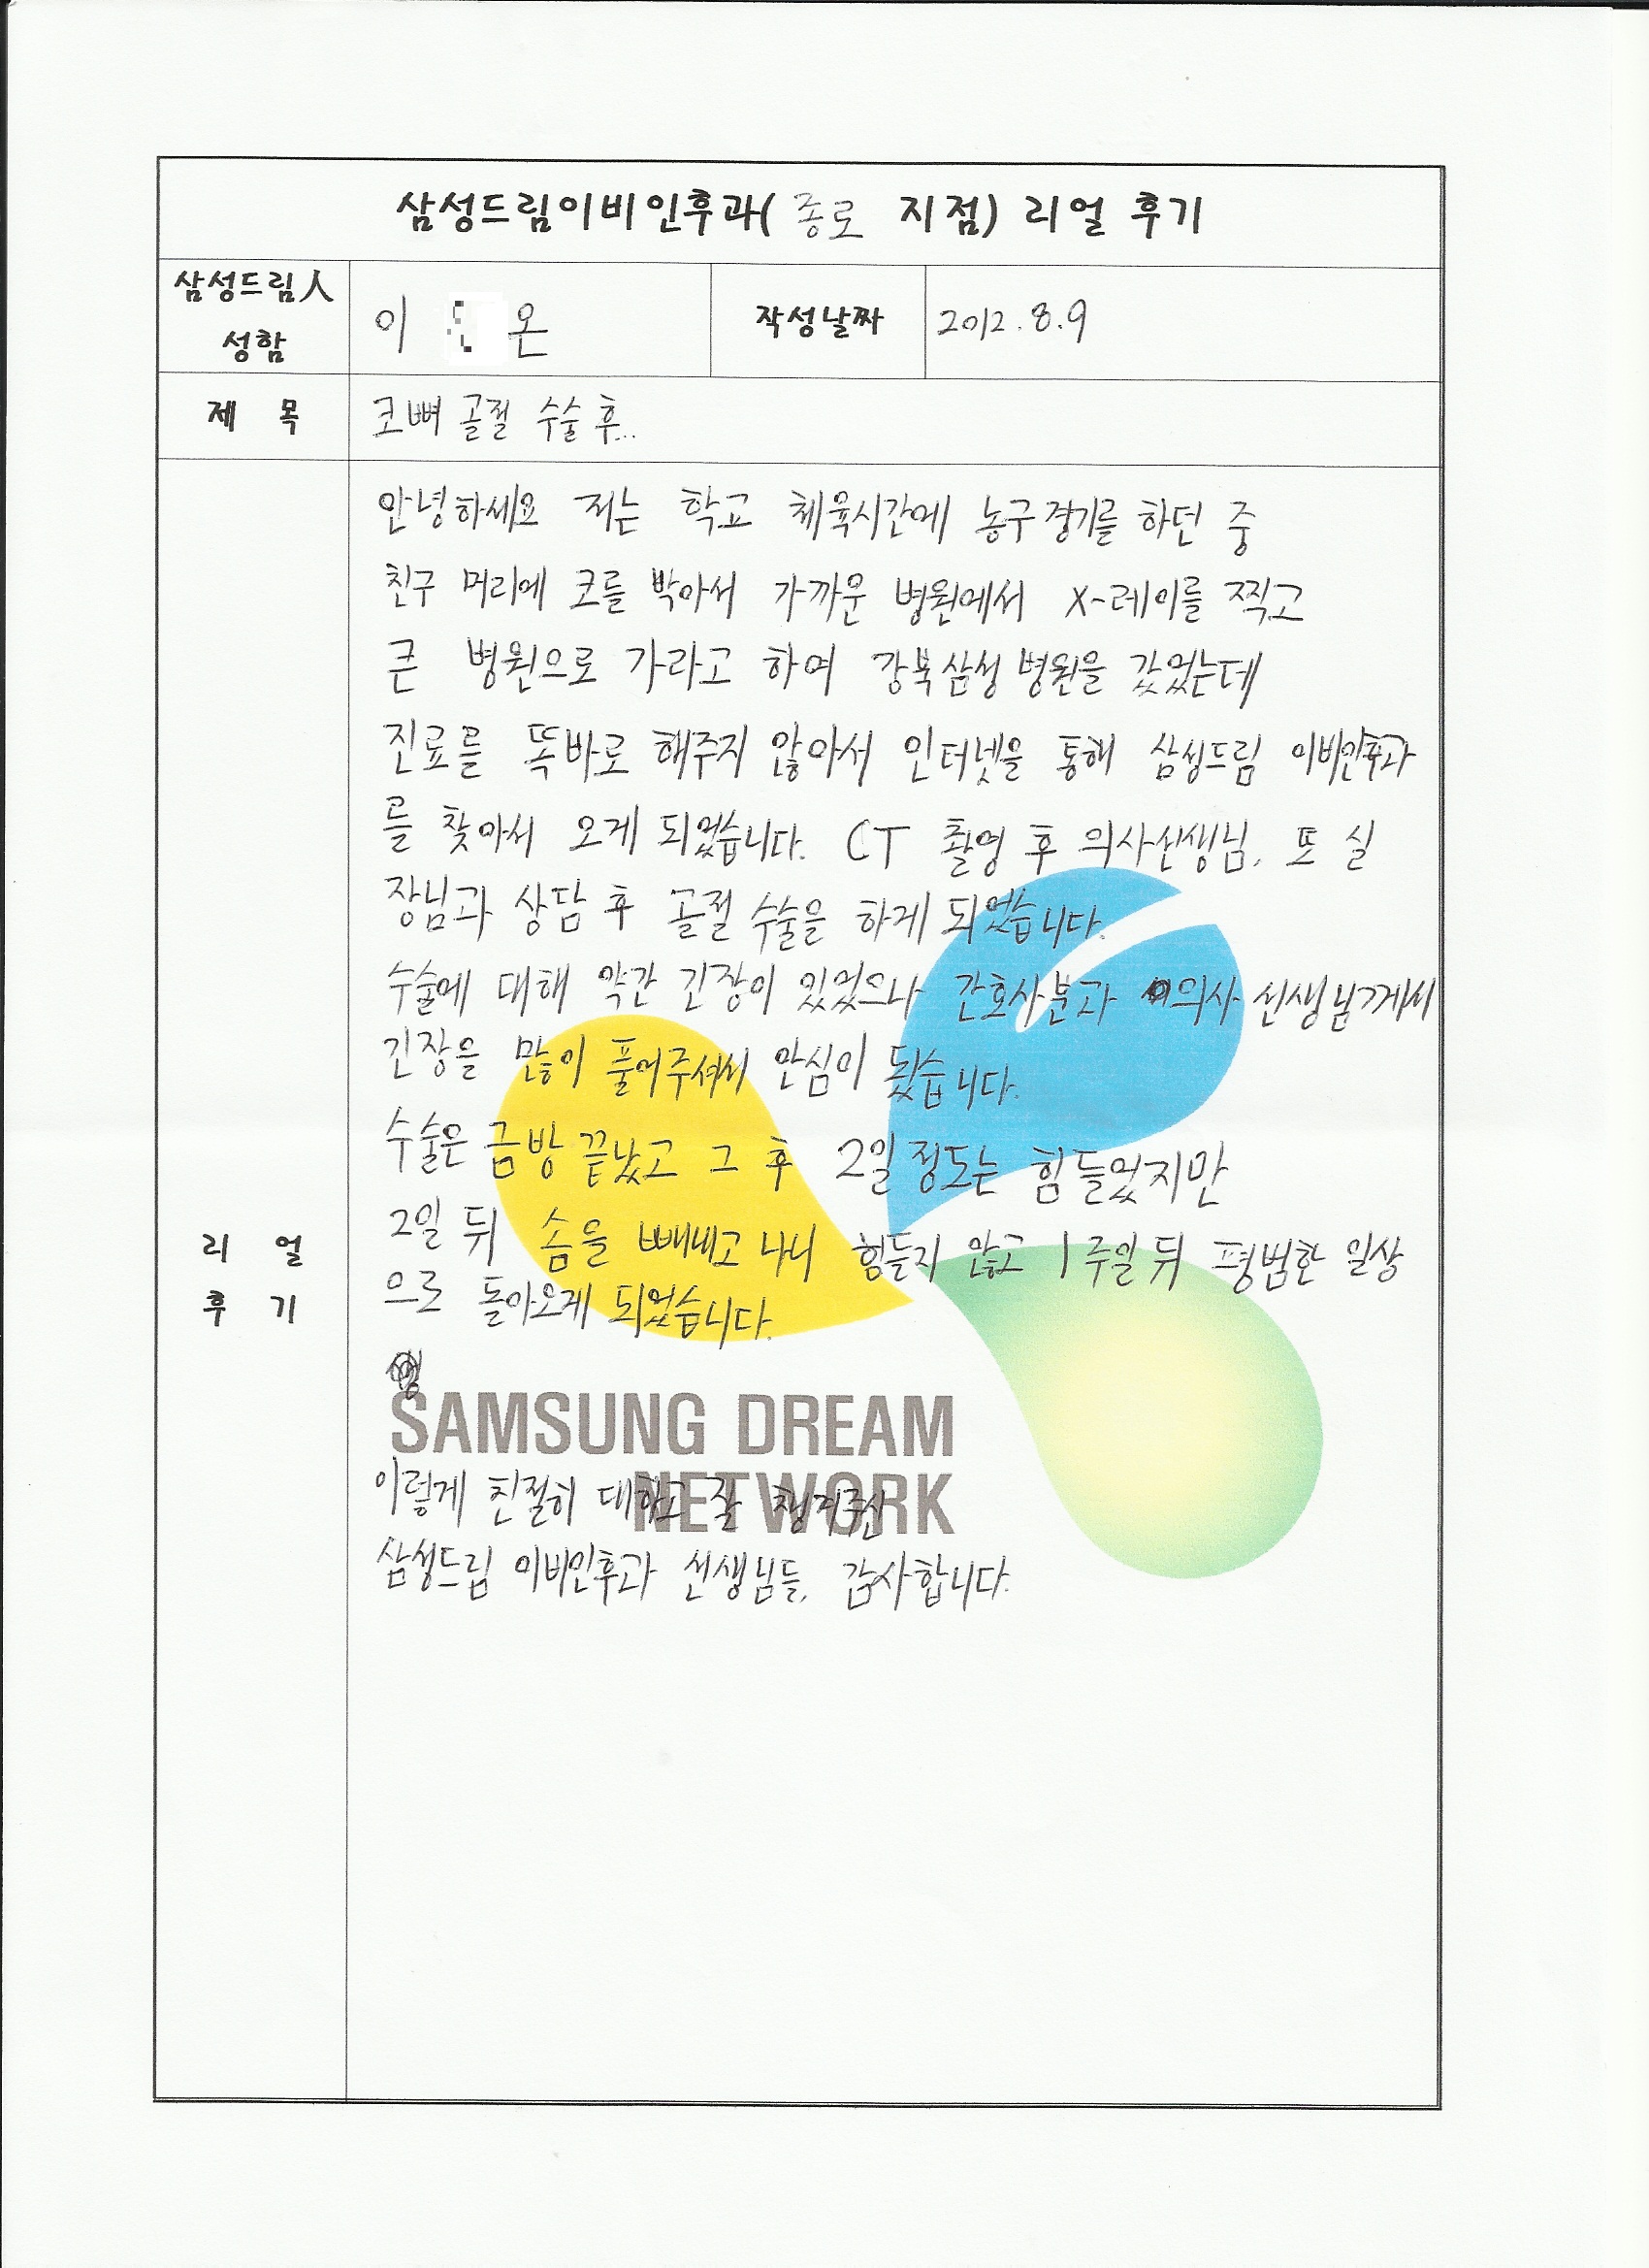 삼성드림이비인후과( 종로 지점) 리얼 후기
삼성드림人
성함
이 온
작성날짜
2012.8.9
제 목
코뼈 골절 수술 후...
리 얼
후 기
안녕하세요 저는 학교 체육시간에 농구경기를 하던 중
친구 머리에 코를 박아서 가까운 병원에서 X-레이를 찍고
큰 병원으로 가라고 하여 강북삼성병원을 갔었는데
진료를 똑바로 해주지 않아서 인터넷을 통해 삼성드림 이비인후과
를 찾아서 오게 되었습니다. CT 촬영 후 의사선생님, 또 실
장님과 상담 후 골절 수술을 하게 되었습니다.
수술에 대해 약간 긴장이 있었으나 간호사분과 의사 선생님께서
긴장을 많이 풀어주셔서 안심이 됬습니다.
수술은 금방 끝났고 그 후 2일 정도는 힘들었지만
2일 뒤 솜을 빼내고 나니 힘들지 않고 1주일 뒤 평범한 일상
으로 돌아오게 되었습니다.
SAMSUNG DREAM
NETWORK
이렇게 친절히 대하고 잘 챙겨주신
삼성드림 이비인후과 선생님들, 감사합니다.